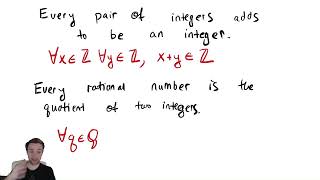 Every pair of integers adds
to be an integer.
∀x∈ℤ ∀y∈ℤ, x+y∈ℤ
Every rational number is the
quotient of two integers.
∀q∈ℚ